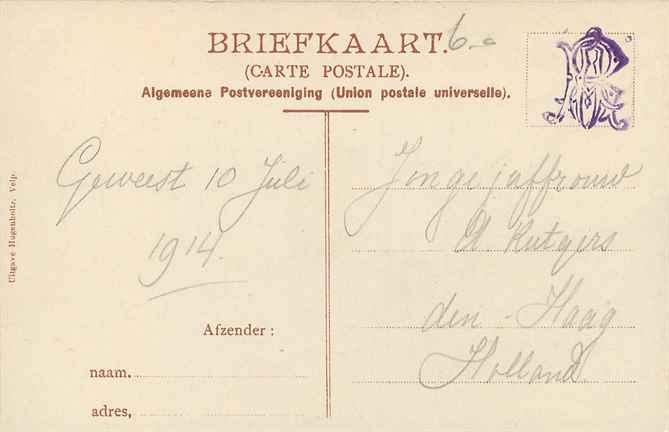 BRIEFKAART. 6.-
(CARTE POSTALE).
Algemeene Postvereeniging (Union postale universelle).
Geweest 10 Juli
1914.
Afzender :
naam.
adres,
Jongejuffrouw
A. Rutgers
den Haag
Holland.
Uitgave Hugenholtz, Velp.